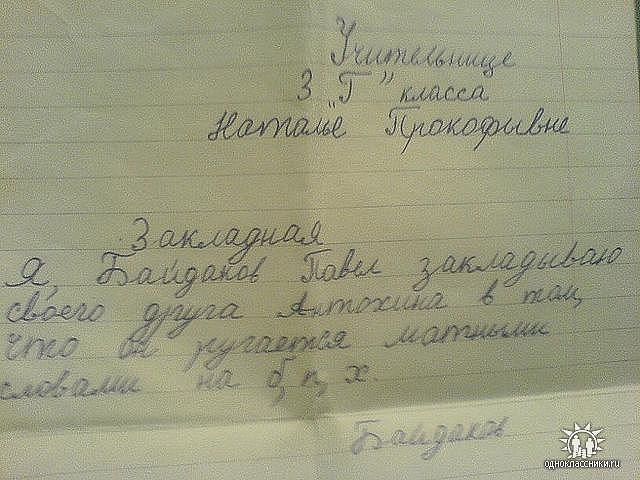 Учительнице
3 "Г" класса
Наталье Прокофывне
Закладная
Я, Байдаков Павел закладываю
своего друга Антохина в том,
что он ругается матными
словами на б, п, х.
Байдаков
одноклассники.ru